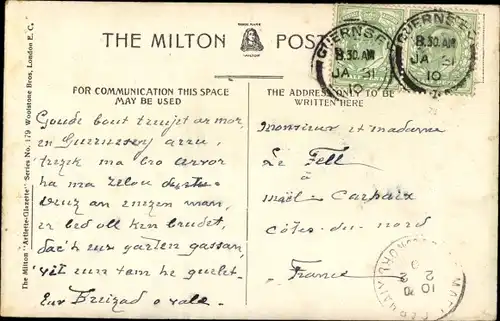 THE MILTON
TRADE MARK
"MILTON"
POST
GUERNSEY
8.30 AM
JA 31
10
GUERNSEY
8.30 AM
JA 31
10
FOR COMMUNICATION THIS SPACE
MAY BE USED
THE ADDRESS ONLY TO BE
WRITTEN HERE
Goude bout treujet ar mor,
en Guernesey arru,
trezek ma bro arvor
ha ma zelou
veuz an enezen man,
er bed oll ken brudet,
dac'h eur garten gassan,
vit eun tam he guelet.
Eur Breizad o vale.
Monsieur et madame
Le Fell
à
Maël-Carhaix
Côtes-du-nord
France
10
2
The Milton "Artlette-Glazette" Series No. 179 Woolstone Bros, London E. C.